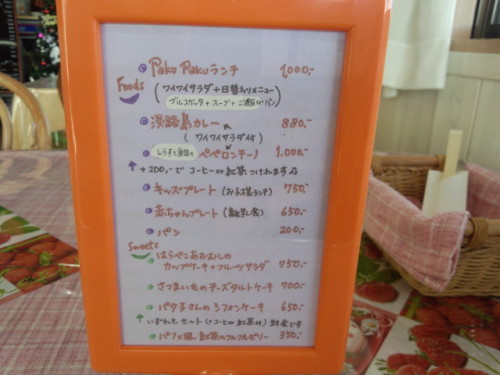 Foods
Pako Raku ランチ 1,000.-
(ワイワイサラダ+日替わりメニュー
ブルスケッタ+スープ+ご飯orパン)
淡路島カレー 880.-
(ワイワイサラダ付)
ペペロンチーノ 1,000.-
↑ +200.-で コーヒーor紅茶 つけれます
キッズプレート (お子様ランチ) 750.-
赤ちゃんプレート 650.-
パン 200.-
Sweets
はらぺこあおむしの
カップケーキ+フルーツサラダ 750.-
さつまいものチーズタルトケーキ 700.-
バタ子さんのシフォンケーキ 650.-
↑ いずれもセット (コーヒーor紅茶付) 料金です
パフェ風 紅茶のフルフルゼリー 350.-